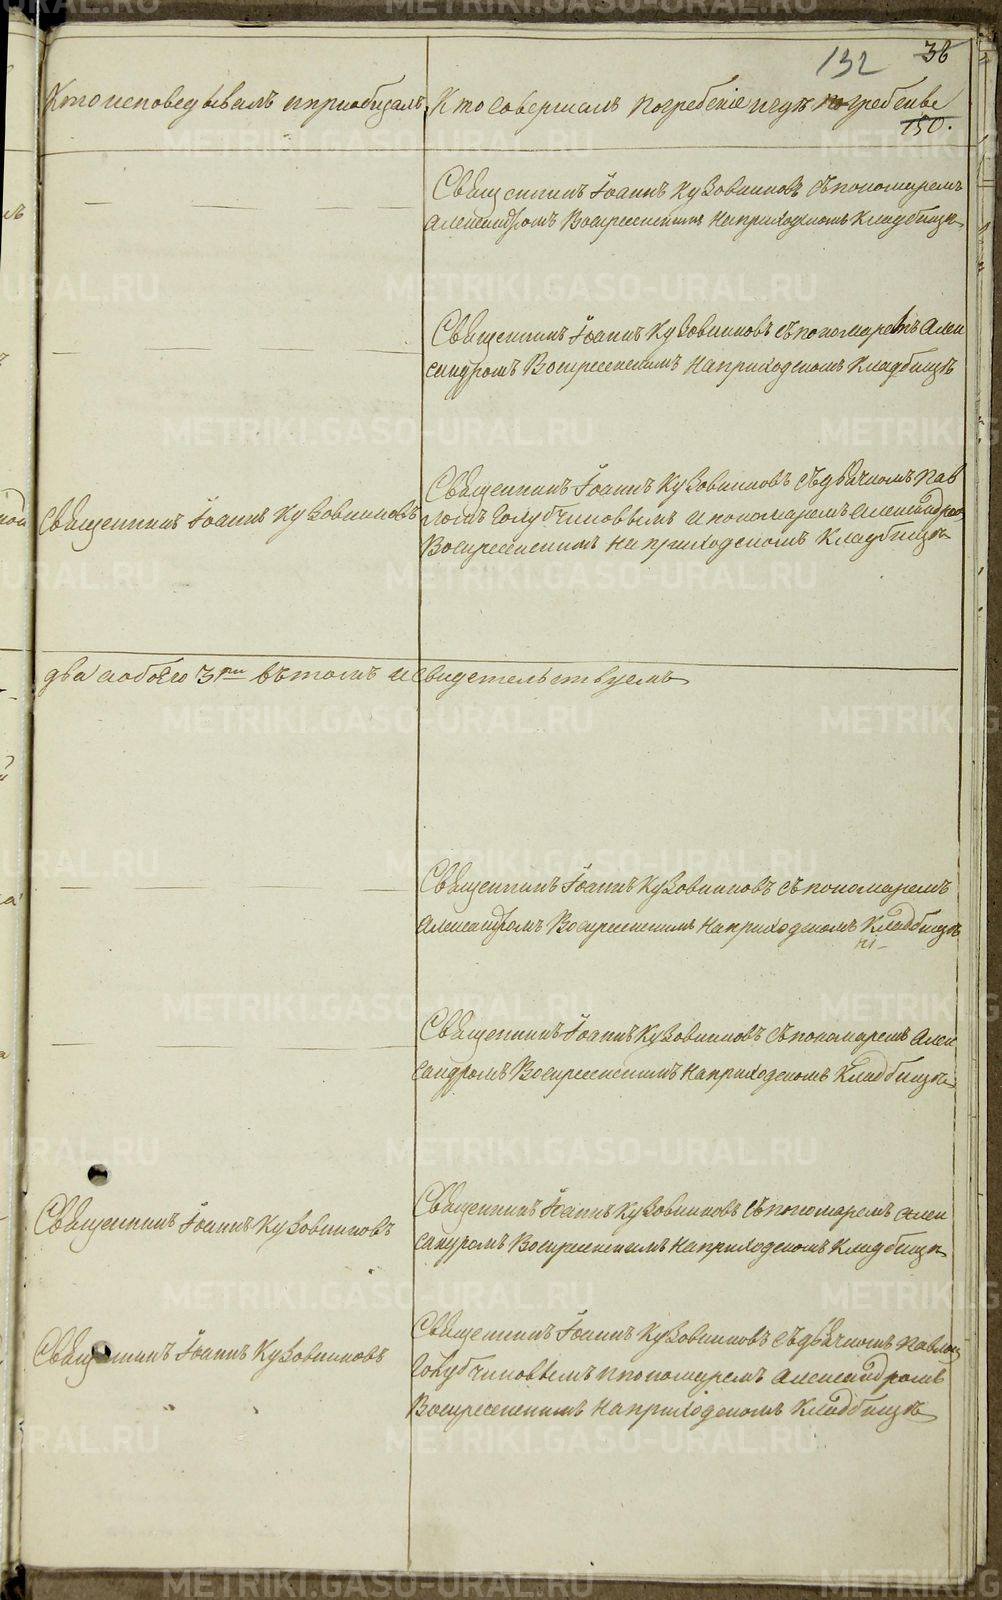 132 38
Кто исповедывалъ и приобщалъ
Кто совершалъ погребеніе и гдѣ погребены
150.
Священникъ Іоаннъ Кузовниковъ съ пономаремъ
Александромъ Воскресенскимъ На приходскомъ Кладбищѣ
Священникъ Іоаннъ Кузовниковъ съ пономаремъ Алек
сандромъ Воскресенскимъ На приходскомъ Кладбищѣ
Священникъ Іоаннъ Кузовниковъ
Священникъ Іоаннъ Кузовниковъ съ дьячкомъ Пав
ломъ Голубчиковымъ и пономаремъ Александромъ
Воскресенскимъ На приходскомъ Кладбищѣ
два а обоего 3 въ томъ и свидетельствуемъ
Священникъ Іоаннъ Кузовниковъ съ пономаремъ
Александромъ Воскресенскимъ На приходскомъ Кладбищѣ
Священникъ Іоаннъ Кузовниковъ съ пономаремъ Алек
сандромъ Воскресенскимъ На приходскомъ Кладбищѣ
Священникъ Іоаннъ Кузовниковъ
Священникъ Іоаннъ Кузовниковъ съ пономаремъ Алек
сандромъ Воскресенскимъ На приходскомъ Кладбищѣ
Священникъ Іоаннъ Кузовниковъ
Священникъ Іоаннъ Кузовниковъ съ дьячкомъ Павломъ
Голубчиковымъ и пономаремъ Александромъ
Воскресенскимъ На приходскомъ Кладбищѣ
METRIKI.GASO-URAL.RU